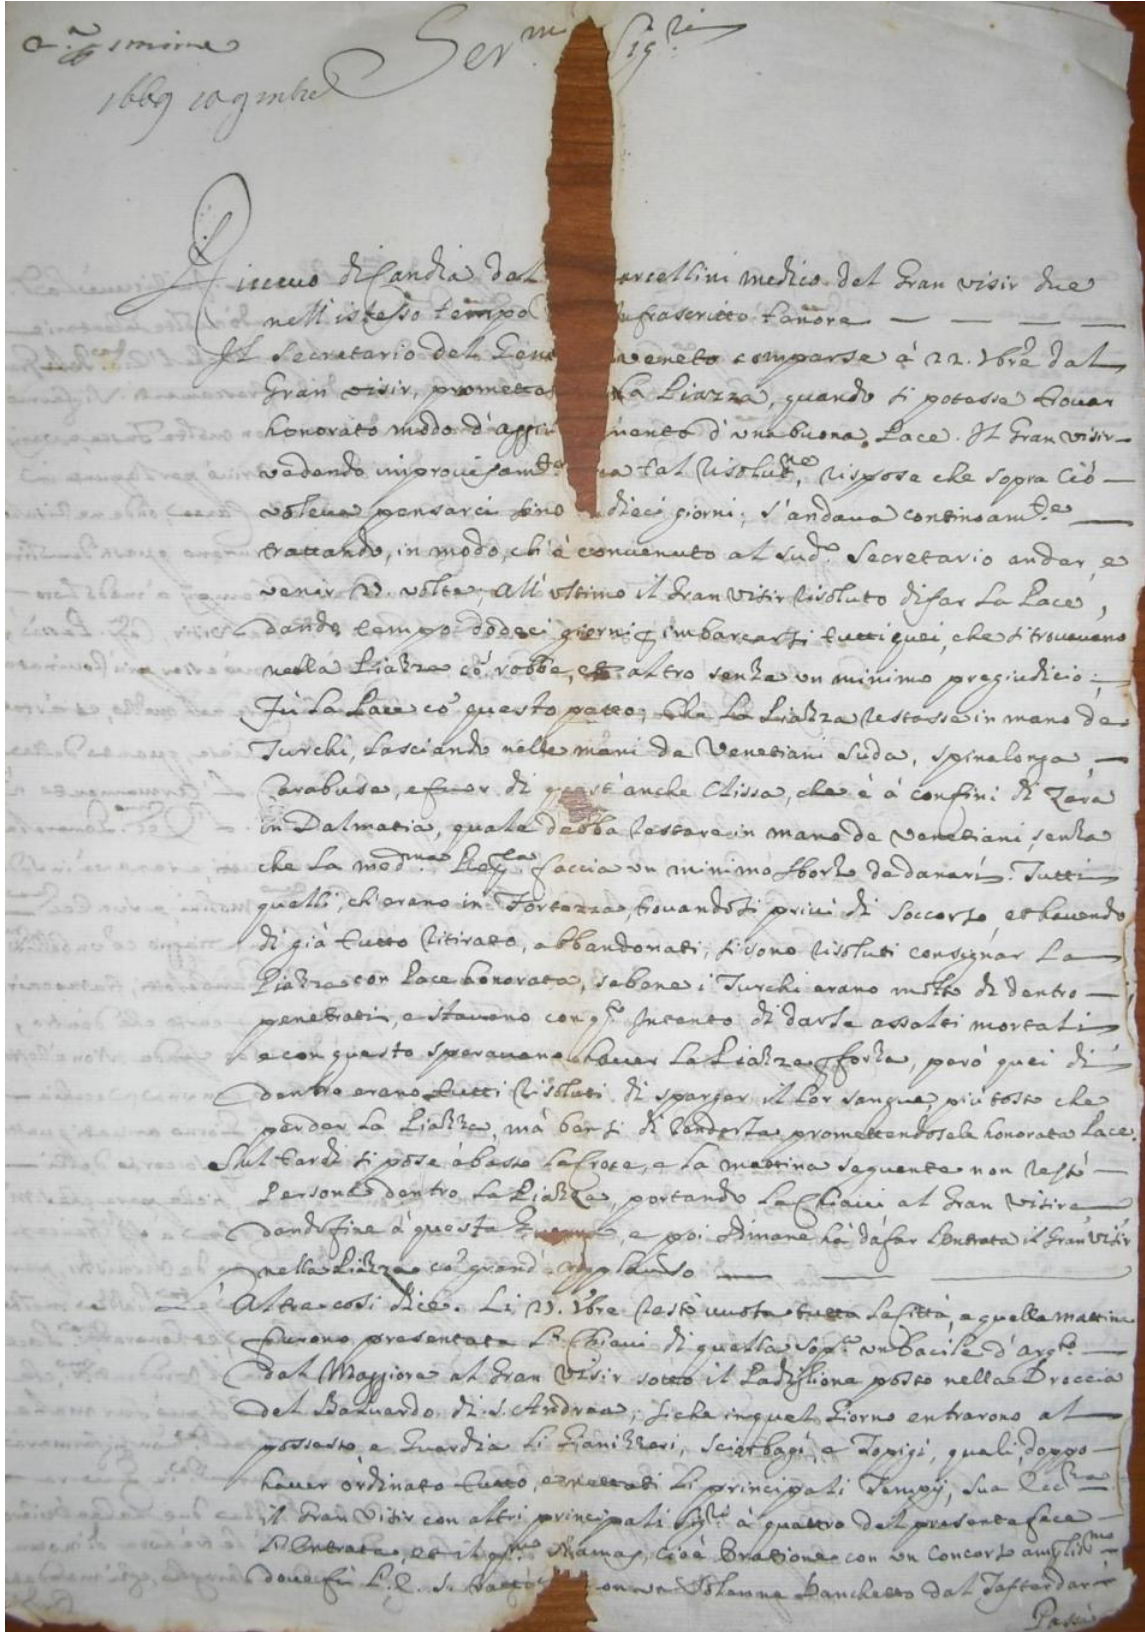 Ser.mi Sig.ri
1669 10 9mbre
Riceuo di Candia dal arcellini medico del Gran Visir due
nell'istesso tempo infrascritto tenore
Il Secretario del Gene Veneto comparse à 22. 7bre dal
Gran Visir, promette la Piazza, quando si potesse trouar
honorato modo d'aggiu mento d'una buona Pace. Il Gran Visir
vedendo improuisam.te tal risolut.ne, rispose che sopra ciò
voleua pensarci sino dieci giorni; s'andaua continoam.te
trattando, in modo, ch'è conuenuto al sud.o Secretario andar, e
venir volte; All'ultimo il Gran Visir risoluto di far la Pace,
dando tempo dodeci giorni imbarcarsi tutti quei, che si trouauano
nella Piazza co' robbe, et altro senza un minimo pregiudicio;
Fù la Pace co' questo patto, Che la Piazza restasse in mano de
Turchi, lasciando nelle mani de Venetiani Suda, Spinalonga,
Carabusa, e fuor di quest'anche Clissa, che è à confini di Zara
in Dalmatia, quale debba restare in mano de Venetiani, senza
che la med.ma faccia un minimo sborso de danari. Tutti
quelli, ch'erano in Fortezza, trouandosi priui di soccorso, et hauendo
di già tutto ritirato, abbandonati, si sono risoluti consignar la
Piazza con Pace honorata, sebene i Turchi erano molto di dentro
penetrati, e stauano con intento di darle assalti mortali
e con questo sperauano hauer la Piazza forza, però quei di
dentro erano tutti risoluti di sparger il lor sangue, più tosto che
perder la Piazza, mà di renderla promettendosele honorata Pace.
Sul tardi si pose à basso la Croce, e la mattina seguente non restò
Persona dentro la Piazza, portando le Chiaui al Gran Visire
dando fine à questa Guerra, e poi dimane hà da far l'entrata il Gran Visir
nella Piazza co' grand' applauso
L'Altra così dice. Li 27. 7bre restò uuota tutta la Città, e quella mattina
furono presentate le Chiaui di quella sop.a un Bacile d'arg.to
dal Maggiore al Gran Visir sotto il Padiglione posto nella Breccia
del Baluardo di S. Andrea; siche in quel giorno entrarono al
possesso, e Guardia li Gianizzeri, e Topigi, quali, doppo
hauer ordinato tutto, li principali Tempij, Sua Ecc.za
il Gran Visir con altri principali Sig.ri à quattro del presente fece
l'Entrata, et il Namas, cioè Oratione con un concorso
doue fù on un solenne Banchetto dal Tefterdar
Passà